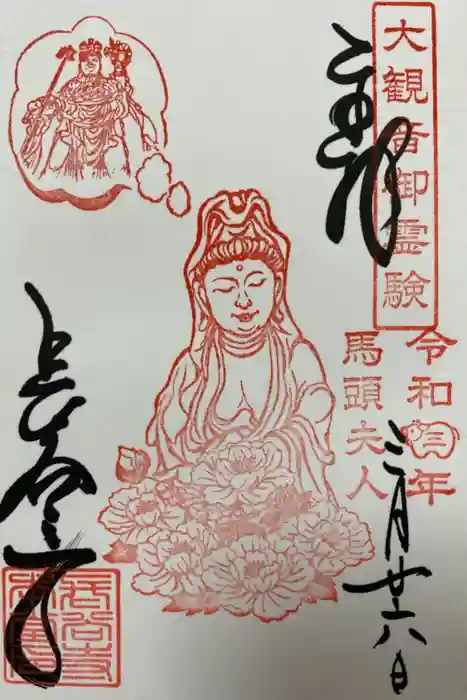 大観音御霊験
奉拝
令和三年
馬頭夫人
三月廿六日
長谷寺